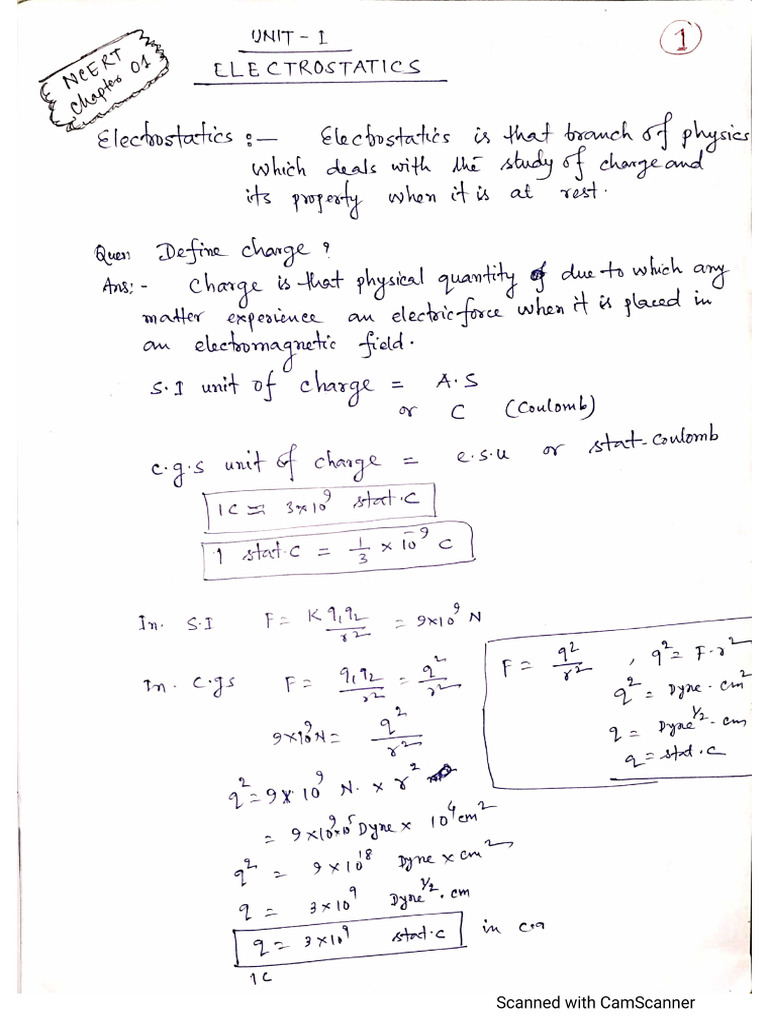 UNIT - I
1
ELECTROSTATICS
NCERT
Chapter 01
Electrostatics :- Electrostatics is that branch of physics
which deals with the study of charge and
its property when it is at rest.
Ques: Define charge ?
Ans:- Charge is that physical quantity due to which any
matter experience an electric force when it is placed in
an electromagnetic field.
S.I unit of charge = A.S
or C (Coulomb)
C.g.s unit of charge = e.s.u or stat-coulomb
1C = 3×10⁹ stat.C
1 stat.C = 1/3 × 10⁻⁹ C
In. S.I F = K q₁q₂/r² = 9×10⁹ N
In. C.gs F = q₁q₂/r² = q²/r²
9×10⁹N = q²/r²
q² = 9×10⁹ N. × r²
= 9×10⁹×10⁵ Dyne × 10⁴cm²
q² = 9×10¹⁸ Dyne × cm²
q = 3×10⁹ Dyne^1/2 . cm
q = 3×10⁹ stat.C in c.g
1C
F = q²/r² , q² = F.r²
q² = Dyne . cm²
q = Dyne^1/2 . cm
q = stat.C
Scanned with CamScanner